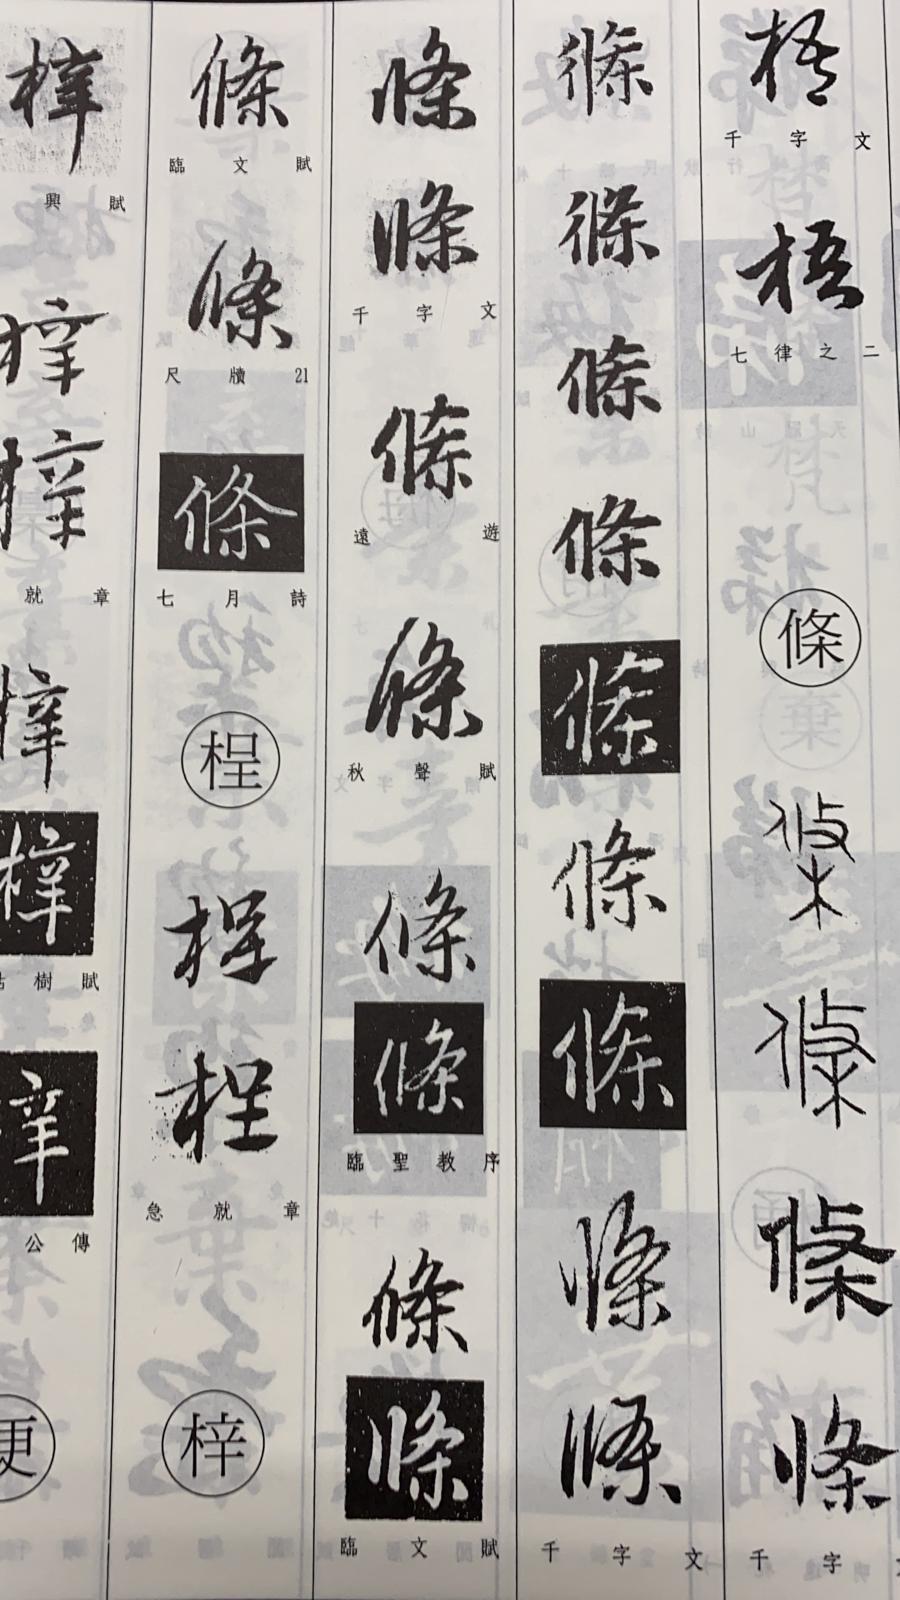 梧
千字文
梧
七律之二
條
條
條
條
條
千字文
條
條
條
條
條
條
條
條
條
千字文
條
條
千字文
條
遠遊
條
秋聲賦
條
條
臨聖教序
條
條
臨文賦
條
臨文賦
條
尺牘21
條
七月詩
桯
桯
桯
急就章
梓
梓
興賦
梓
梓
就章
梓
梓
樹賦
梓
公傳